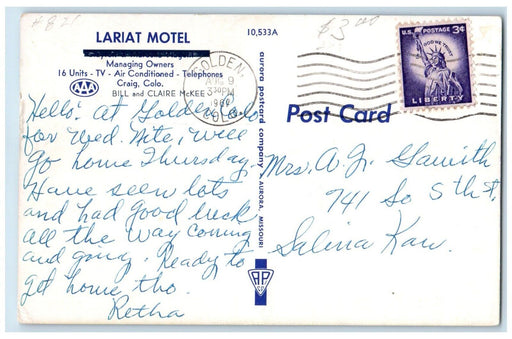 #821
$3.00
LARIAT MOTEL
10,533A
Managing Owners
16 Units - TV - Air Conditioned - Telephones
Craig, Colo.
AAA
BILL and CLAIRE McKEE
GOLDEN,
AUG 9
PM
COLO.
U.S. POSTAGE 3¢
IN GOD WE TRUST
LIBERTY
Post Card
aurora postcard company • AURORA, MISSOURI
Hello: At Golden, Colo
for Wed. Nite, will
go home Thursday.
Have seen lots
and had good luck
all the way coming
and going. Ready to
get home, tho.
Retha
Mrs. A. J.
741 So 5th St,
Salina Kan.